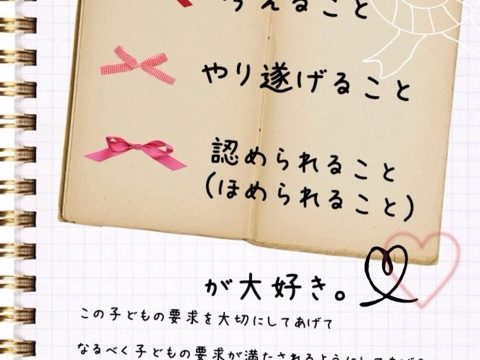 えること
やり遂げること
認められること
(ほめられること)
が大好き。
この子どもの要求を大切にしてあげて
なるべく子どもの要求が満たされるようにしてあげ